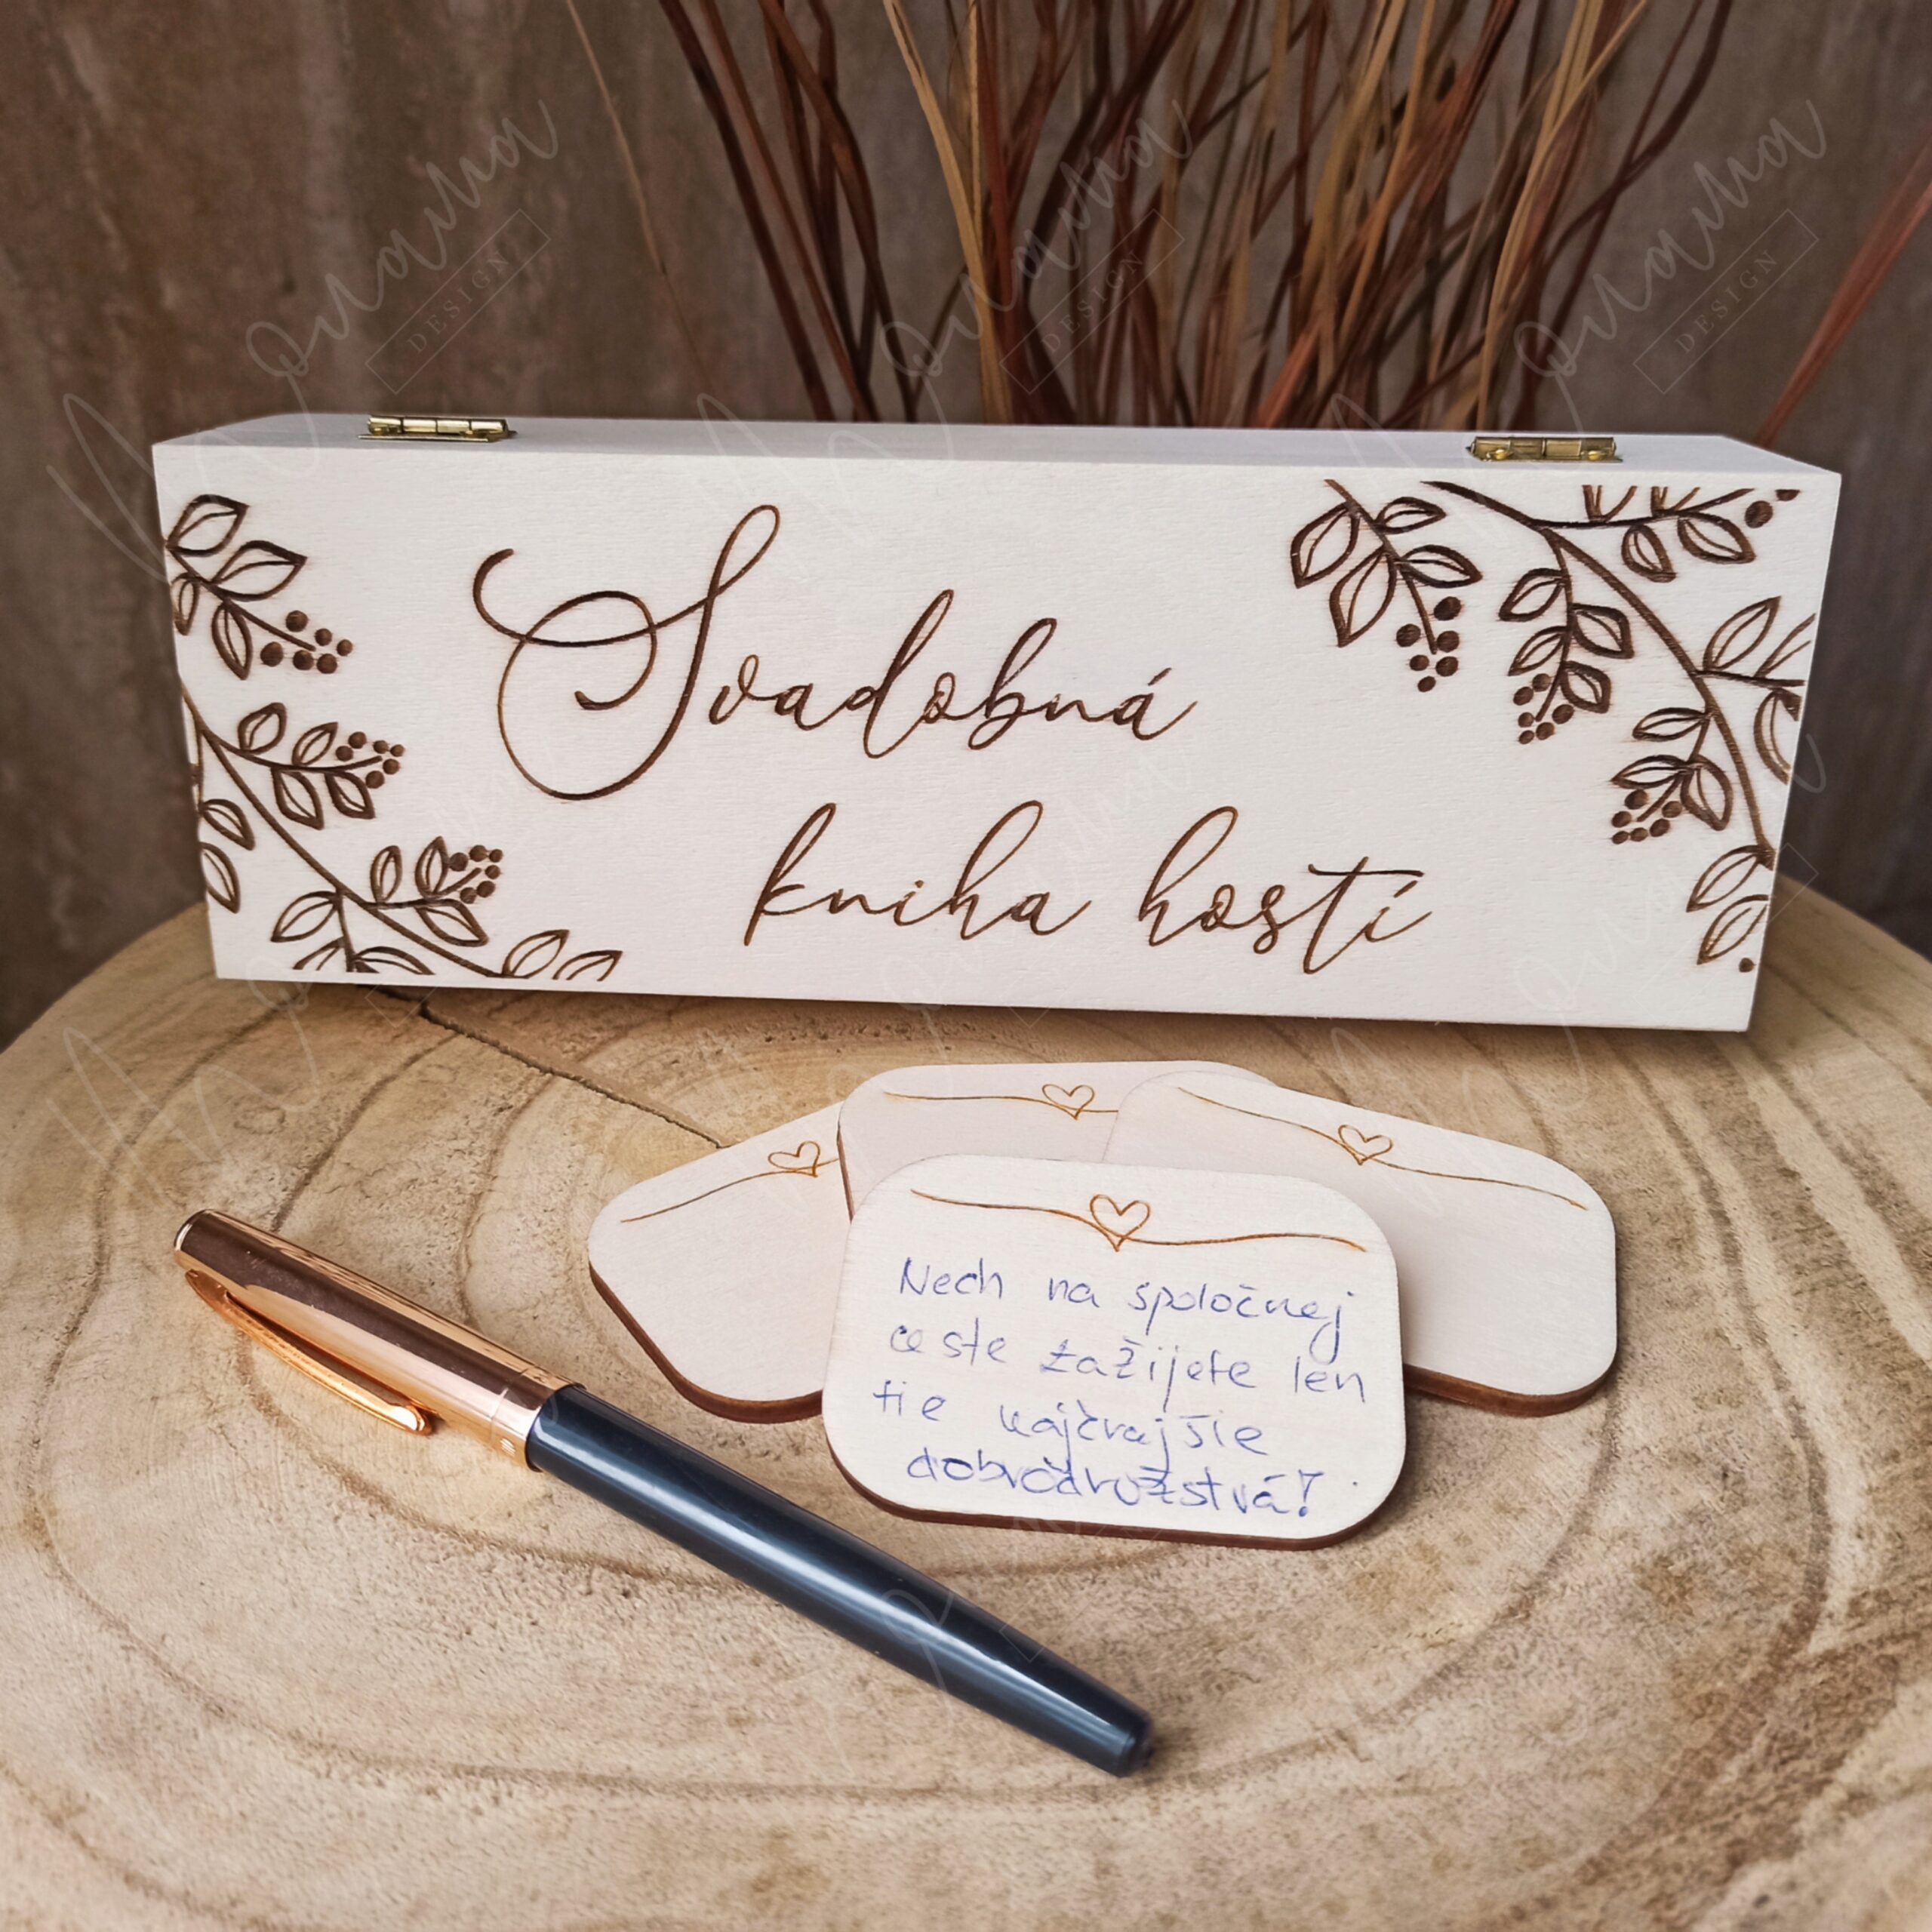 Svadobná
kniha hostí
Nech na spoločnej
ceste zažijete len
tie najkrajšie
dobrodružstvá!
DESIGN
DESIGN
DESIGN